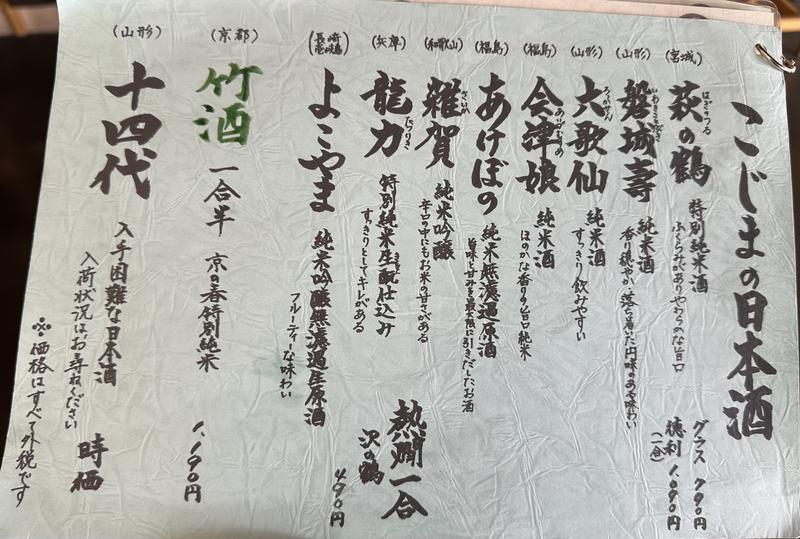 こじまの日本酒
(宮城)
萩の鶴
はぎのつる
特別純米酒
ふくらみがありやわらかな旨口
グラス 790円
徳利 1,090円
(一合)
(山形)
磐城壽
いわきことぶき
純米酒
香り穏やか、落ち着いた円味のある味わい
(山形)
六歌仙
ろっかせん
純米酒
すっきり飲みやすい
(福島)
会津娘
あいづむすめ
純米酒
ほのかな香りの旨口純米
(福島)
あけぼの
純米無濾過原酒
旨味と甘みを最大限に引きだしたお酒
(和歌山)
雑賀
さいか
純米吟醸
辛口の中にもお米の甘さがある
(兵庫)
龍力
たつりき
特別純米生酛仕込み
すっきりとしてキレがある
熱燗一合
沢の鶴
490円
(長崎壱岐島)
よこやま
純米吟醸無濾過生原酒
フルーティーな味わい
(京都)
竹酒
一合半 京の春特別純米
1,190円
(山形)
十四代
入手困難な日本酒
入荷状況はお尋ねください
時価
※価格はすべて外税です